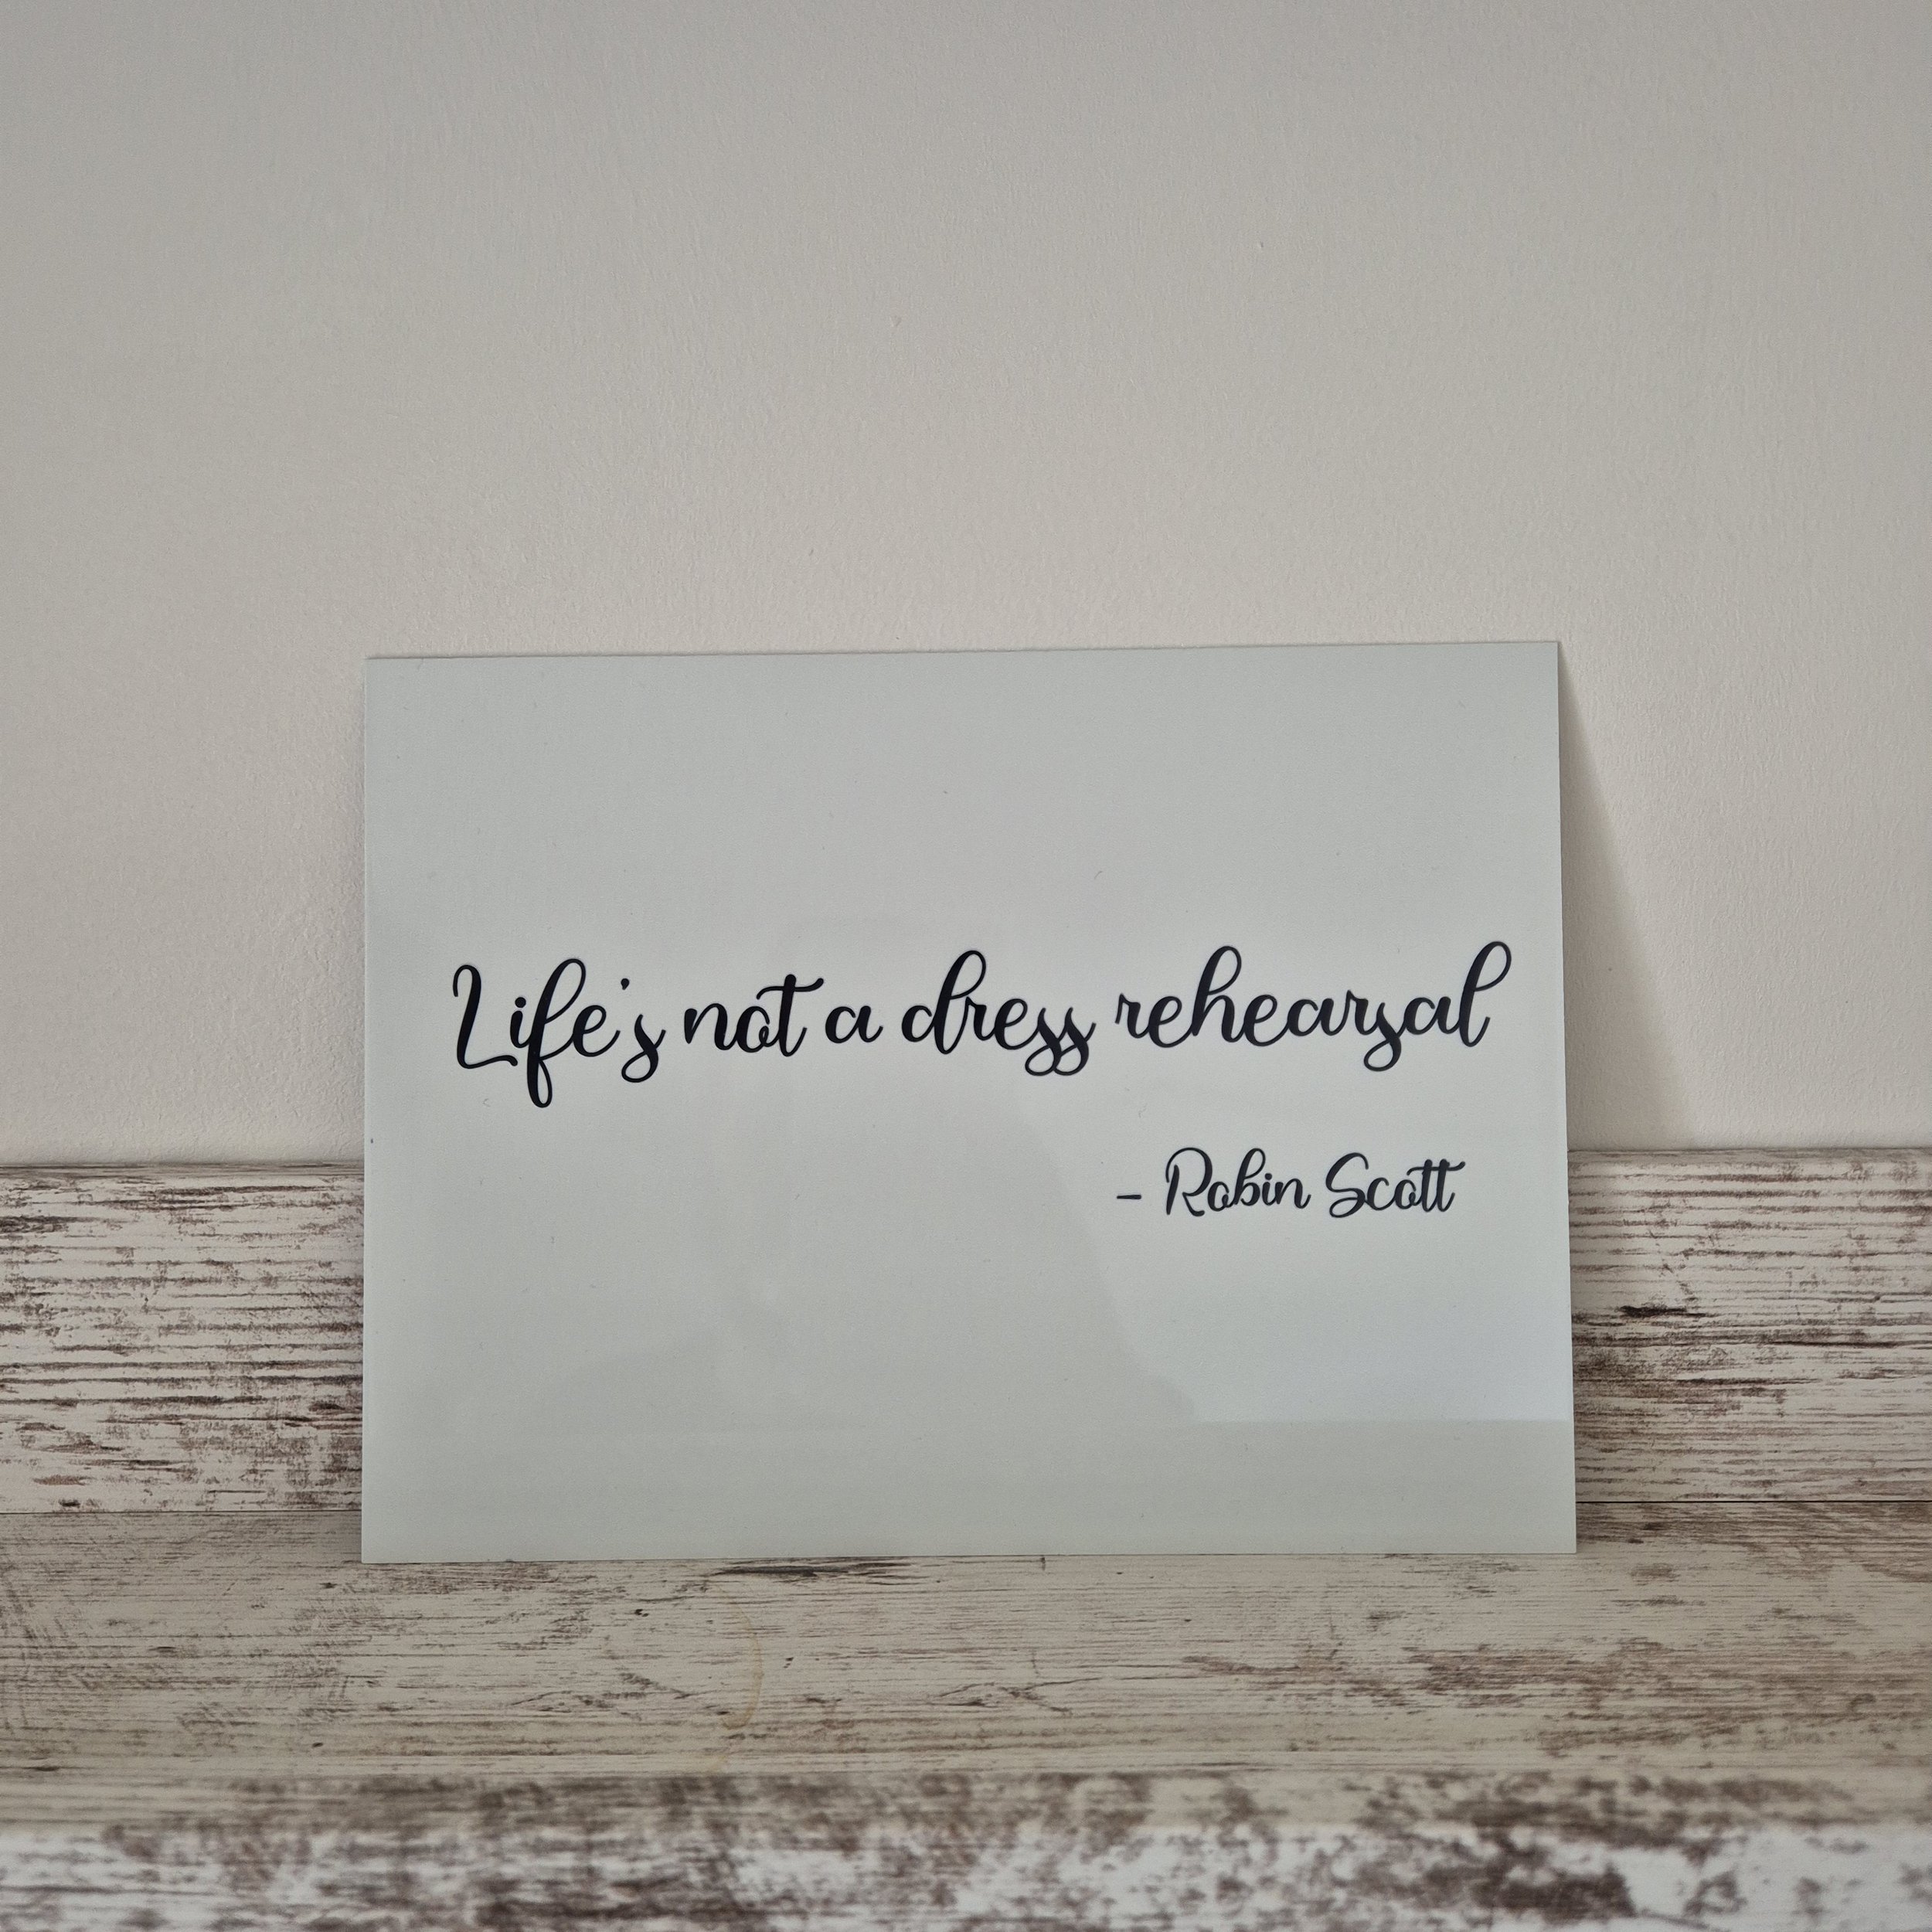 Life's not a dress rehearsal
- Robin Scott